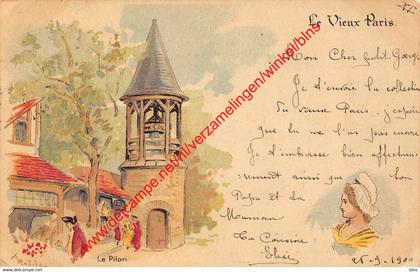 Le Vieux Paris.
Mon Cher petit George
Je t'envoie la collection
du vieux Paris, j'espère
que tu ne l'as pas encore
Je t'embrasse bien affectueu
sement ainsi que ton
Papa et ta
Maman
Ta Cousine
Elise
25-9-1900
Le Pilori.
www.delcampe.net/verzamelingen/winkel/blns